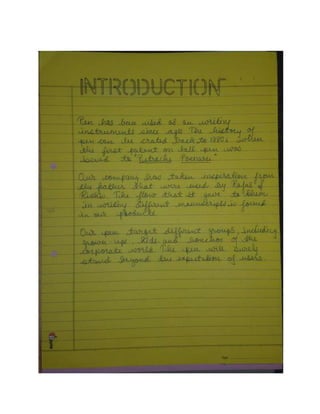 INTRODUCTION
Pen has been used as an writing
instruments since ago. The history of
pen can be crated back to 1880s when
the first patent on ball pen was
issued to "Petrache Poenaru"
Our company has taken inspiration from
the feather that were used by
The flow that it give to them
in writing different manuscripts is found
in our products
Our pen target different groups including
grown ups, kids and of the
corporate world. The pen will surely
stand beyond the expectation of users.